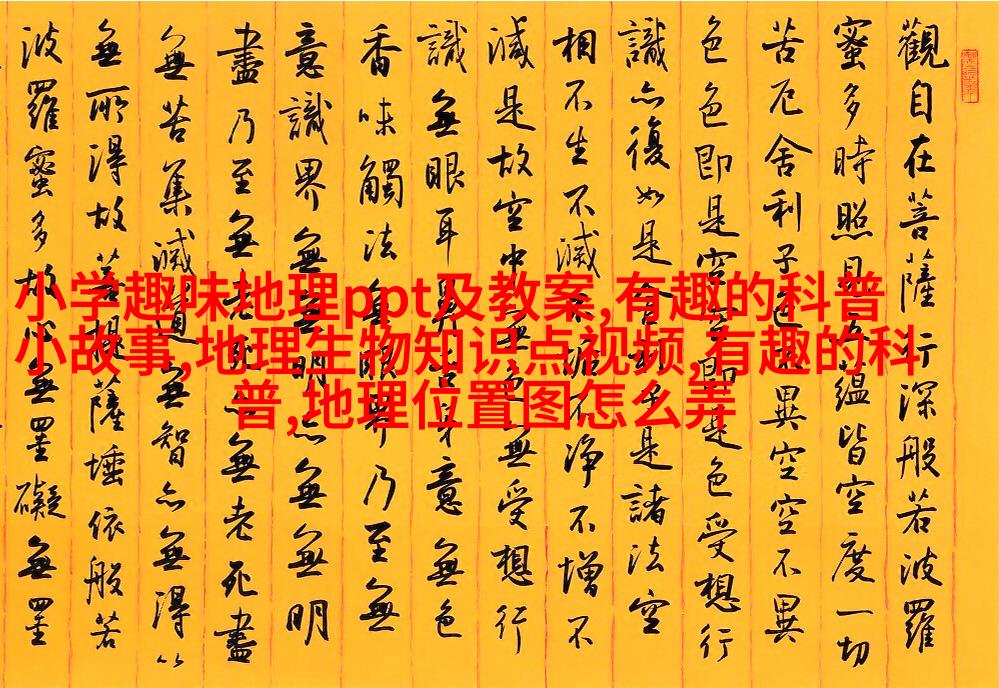 觀自在菩薩行深般若波羅
蜜多時照見五蘊皆空度一切
苦厄舍利子色不異空空不異
色色即是空空即是色受想行
識亦復如是舍利子是諸法空
相不生不滅不垢不淨不增不
減是故空中無色無受想行
識無眼耳鼻舌身意無色
香味觸法無眼界乃至無
意識界無無明亦無無明
盡乃至無老死亦無老死盡
無苦集滅道無智亦無得以
無所得故菩提薩埵依般若
波羅蜜多故心無罣礙無罣
小学趣味地理ppt及教案,有趣的科普
小故事,地理生物知识点视频,有趣的科
普,地理位置图怎么弄